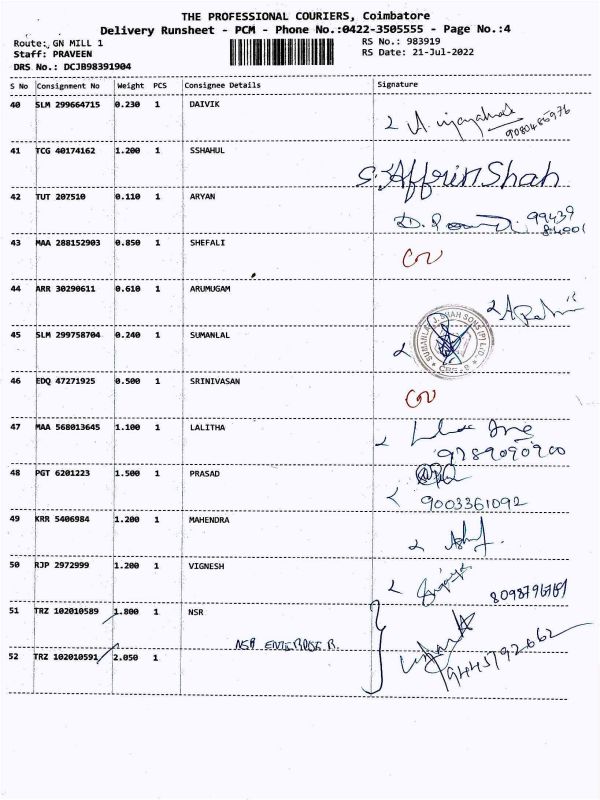 THE PROFESSIONAL COURIERS, Coimbatore
Delivery Runsheet - PCM - Phone No.:0422-3505555 - Page No.:4
Route: GN MILL 1
RS No.: 983919
Staff: PRAVEEN
RS Date: 21-Jul-2022
DRS No.: DCJB98391904
S No Consignment No Weight PCS Consignee Details Signature
40 SLM 299664715 0.230 1 DAIVIK
9080485976
41 TCG 40174162 1.200 1 SSHAHUL
S. Affrin Shah
42 TUT 207510 0.110 1 ARYAN
43 MAA 288152903 0.850 1 SHEFALI
44 ARR 30290611 0.610 1 ARUMUGAM
45 SLM 299758704 0.240 1 SUMANLAL
SUMANLAL J. SHAH SONS (P) LTD
46 EDQ 47271925 0.500 1 SRINIVASAN
47 MAA 568013645 1.100 1 LALITHA
9789090900
48 PGT 6201223 1.500 1 PRASAD
9003361092
49 KRR 5406984 1.200 1 MAHENDRA
50 RJP 2972999 1.200 1 VIGNESH
51 TRZ 102010589 1.800 1 NSR
52 TRZ 102010591 2.050 1